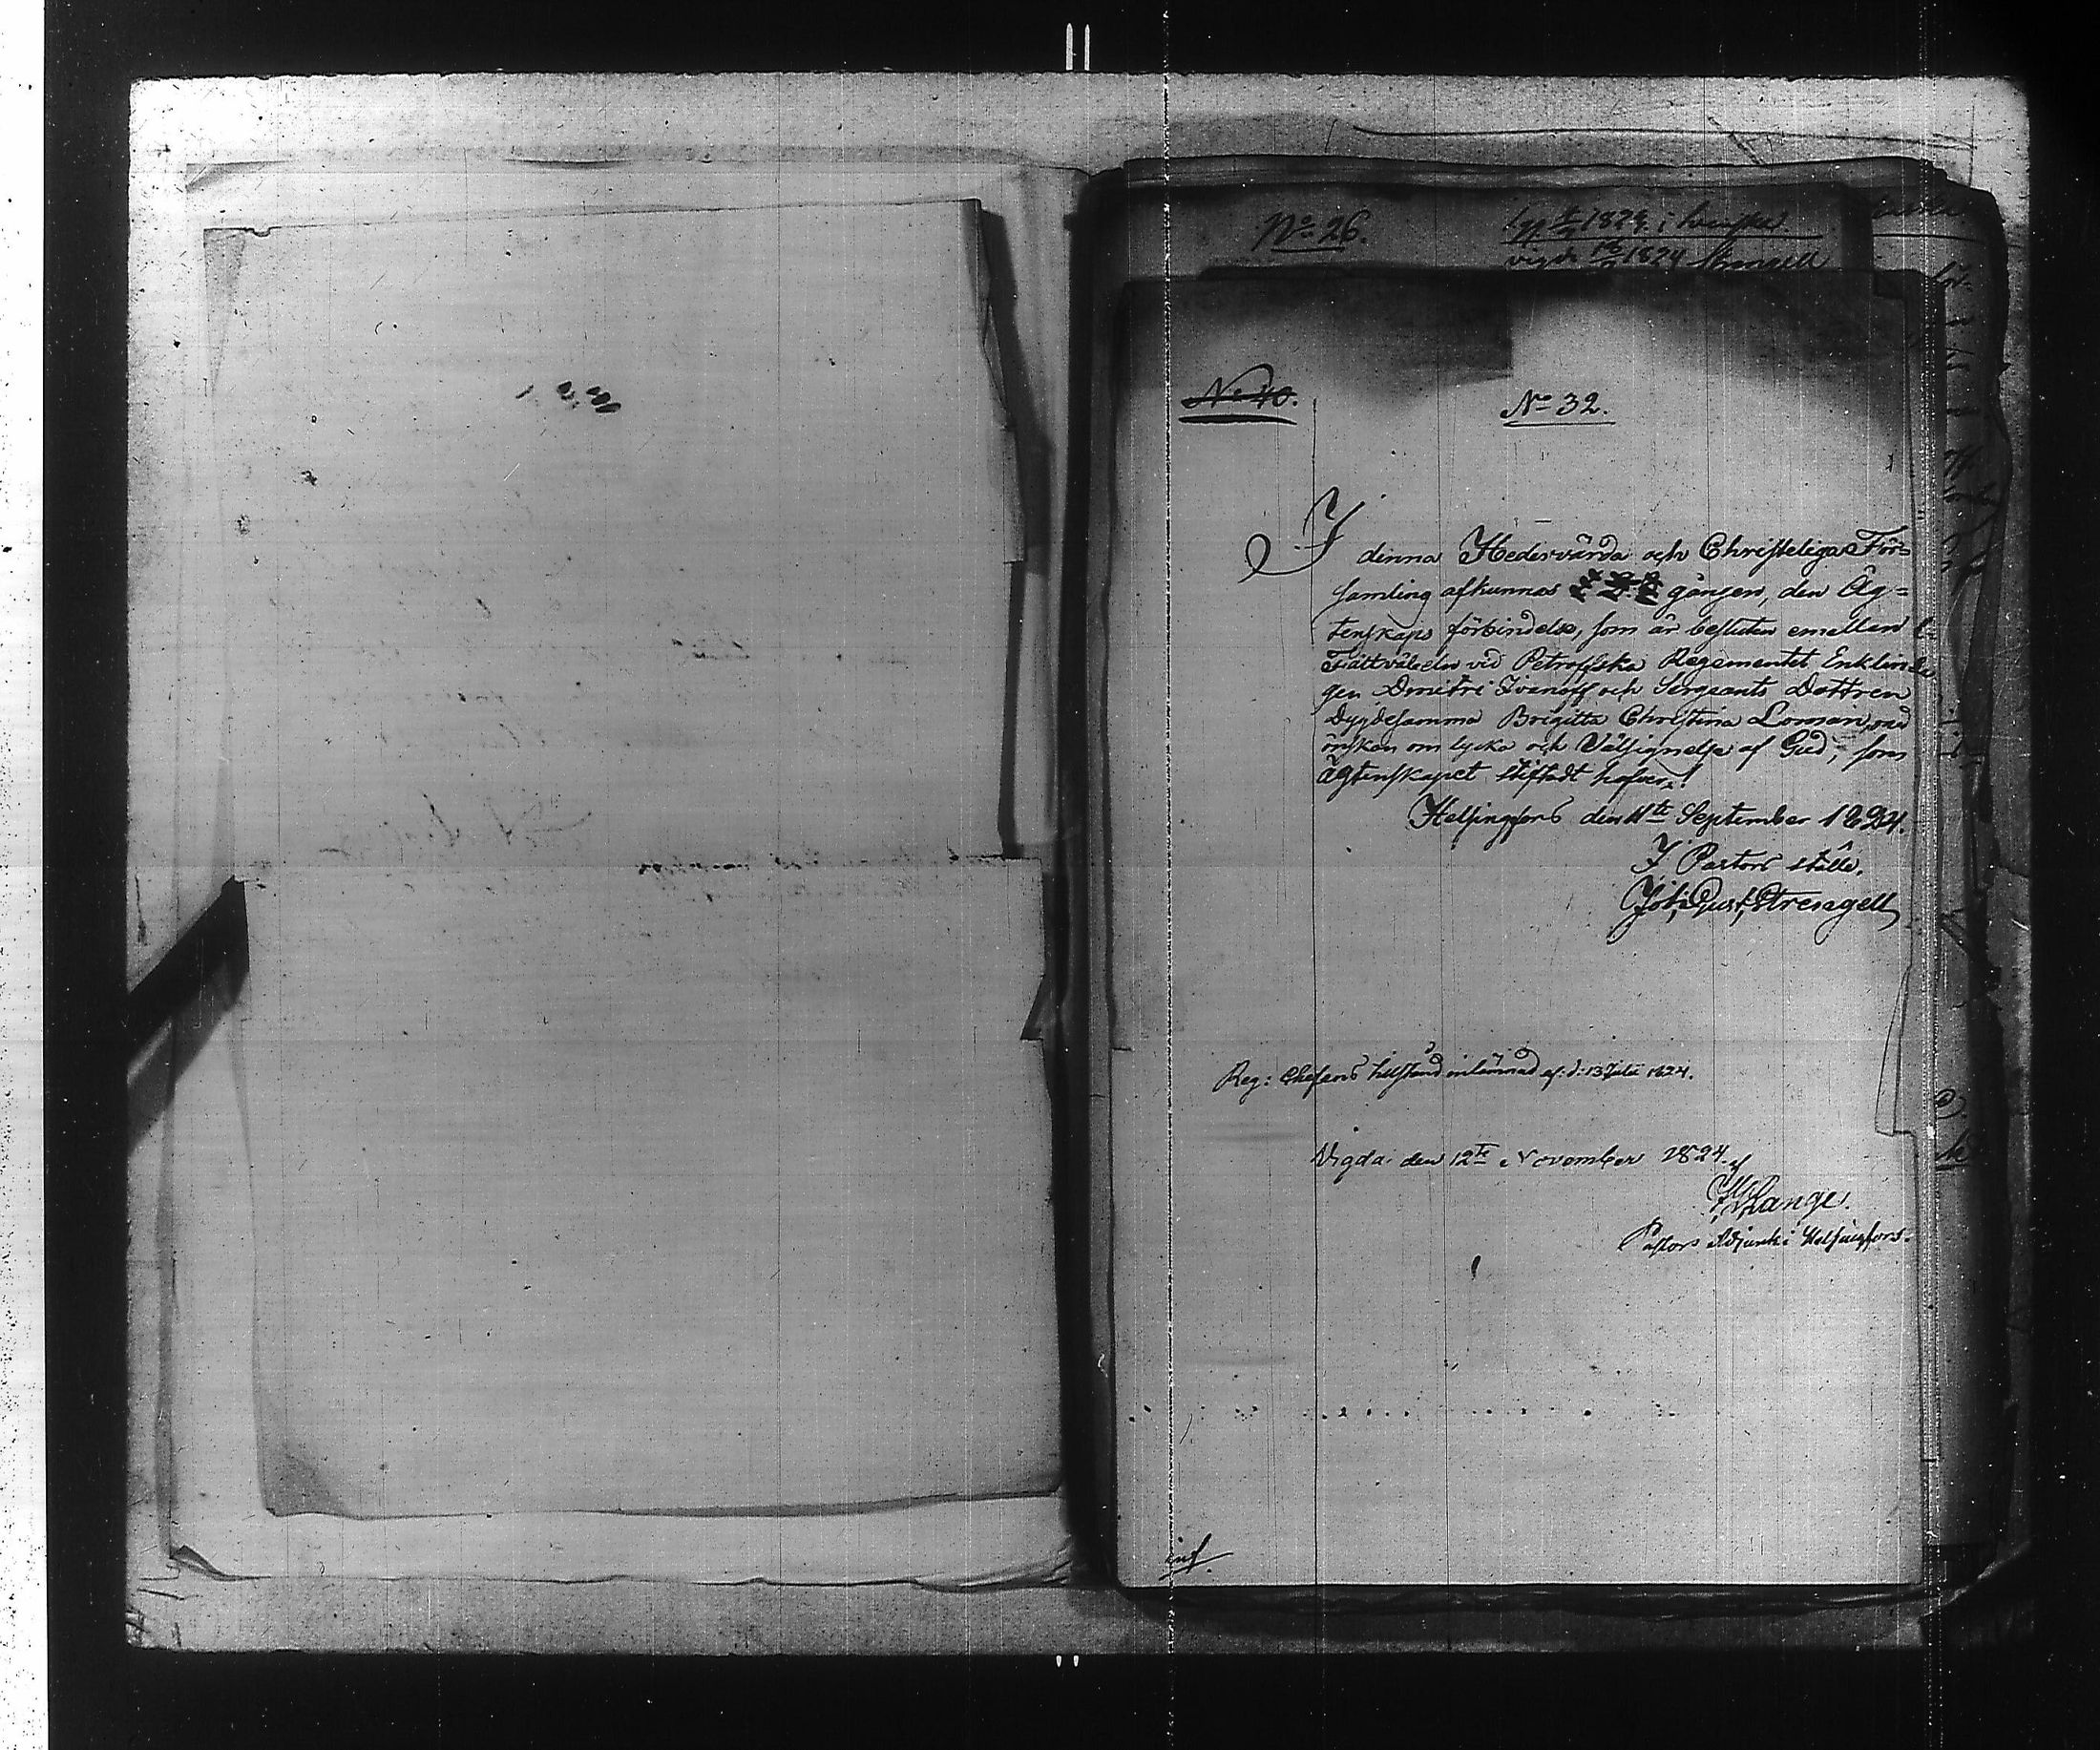 No 26.
1824 i
vigde 1824 Strengell
No 40.
No 32.
I denna Hedervärda och Christeliga För=
samling afkunnas gången, den Äg=
tenskaps förbindelse, som är besluten emellan
Fältväbeln vid Petroffska Regementet Enklin
gen Dmitri Ivanoff och Sergeants Dottren
Dygdesamma Brigitta Christina Loman, med
önskan om lycka och Välsignelse af Gud, som
Ägtenskapet stiftadt hafver!
Helsingfors den 11te September 1824.
I Pastors ställe.
Joh. Gust. Strengell
Reg: Chefens tillstånd inlämnad af: d: 13 Julii 1824.
Vigda den 12te November 1824 af
Range.
Pastors Adjunkt i Helsingfors.
inf.